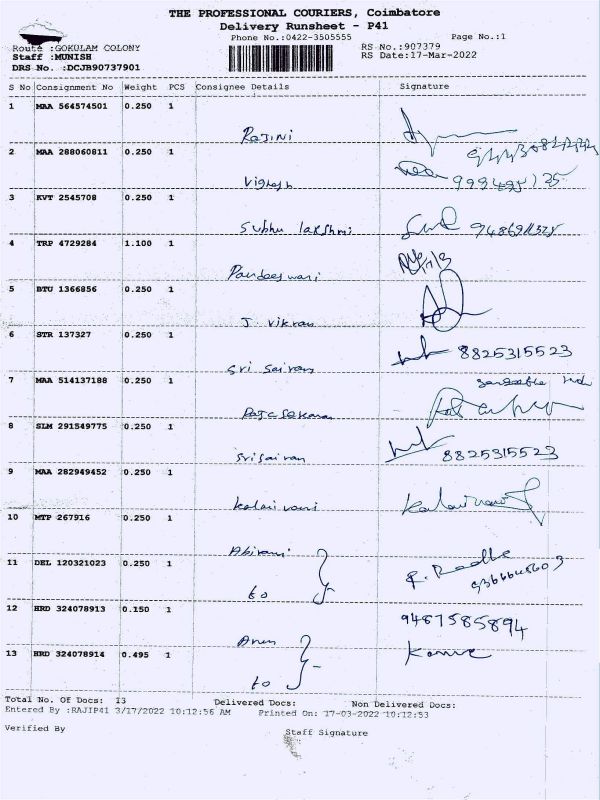 THE PROFESSIONAL COURIERS, Coimbatore
Delivery Runsheet - P41
Phone No.:0422-3505555 Page No.:1
Route :GOKULAM COLONY RS No.:907379
Staff :MUNISH RS Date:17-Mar-2022
DRS No. :DCJB90737901
S No Consignment No Weight PCS Consignee Details Signature
1 MAA 564574501 0.250 1
Rajini
2 MAA 288060811 0.250 1
Vignesh
3 KVT 2545708 0.250 1
Subhu lakshmi
4 TRP 4729284 1.100 1
Pandeeswari
5 BTU 1366856 0.250 1
J. vikram
6 STR 137327 0.250 1
Sri Sairam 8825315523
7 MAA 514137188 0.250 1
Rajasekaran
8 SLM 291549775 0.250 1
Srisairam 8825315523
9 MAA 282949452 0.250 1
kalaivani Kalaivani
10 MTP 267916 0.250 1
Abirami
11 DEL 120321023 0.250 1 R. Radha
to
12 HRD 324078913 0.150 1 9487585894
Arun
13 HRD 324078914 0.495 1
to
Total No. Of Docs: 13 Delivered Docs: Non Delivered Docs:
Entered By :RAJIP41 3/17/2022 10:12:56 AM Printed On: 17-03-2022 10:12:53
Verified By Staff Signature